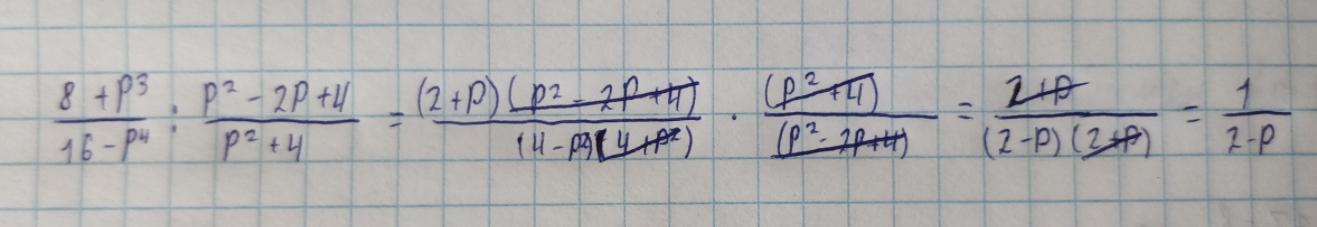 (8 + p³)/(16 - p⁴) : (p² - 2p + 4)/(p² + 4) = ((2 + p)(p² - 2p + 4))/((4 - p²)(4 + p²)) · ((p² + 4))/((p² - 2p + 4)) = (2 + p)/((2 - p)(2 + p)) = 1/(2 - p)